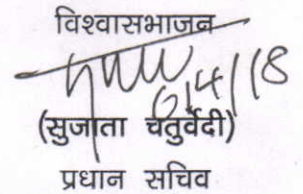 विश्वासभाजन
6/4/18
(सुजाता चतुर्वेदी)
प्रधान सचिव